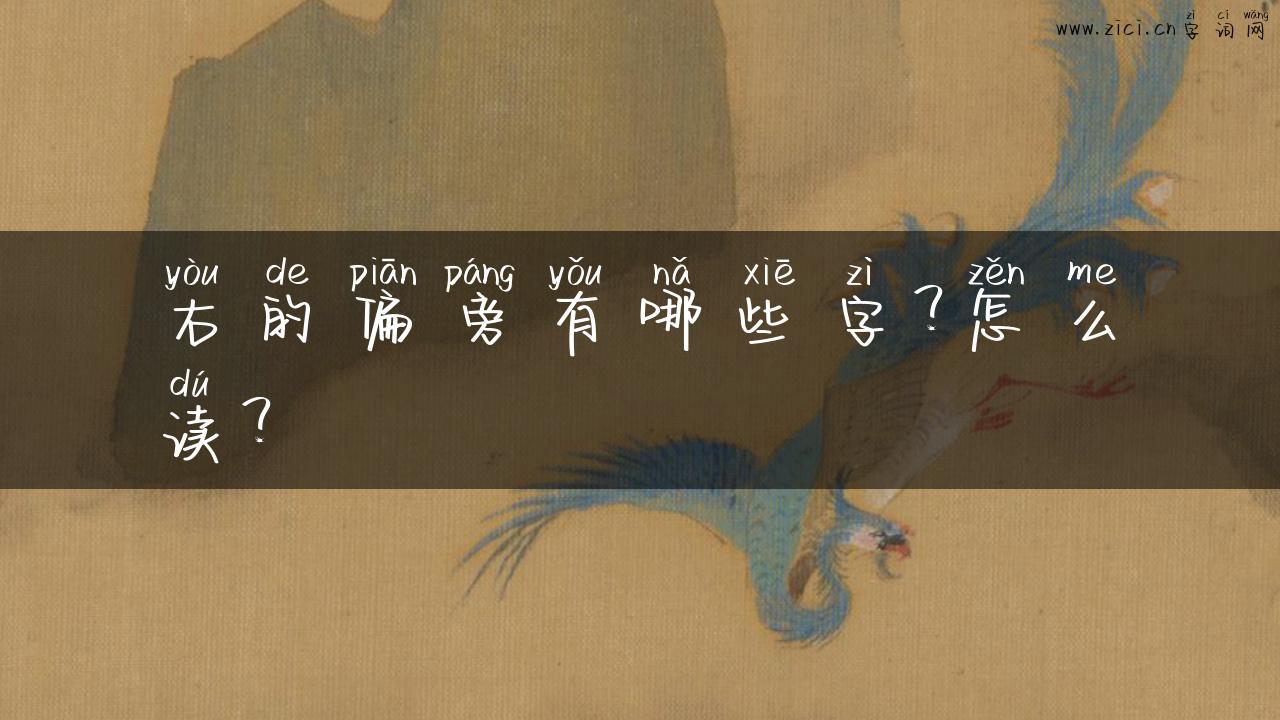 zì cí wǎng
www.zici.cn 字词网
yòu de piān páng yǒu nǎ xiē zì zěn me
右的偏旁有哪些字？怎么
dú
读？